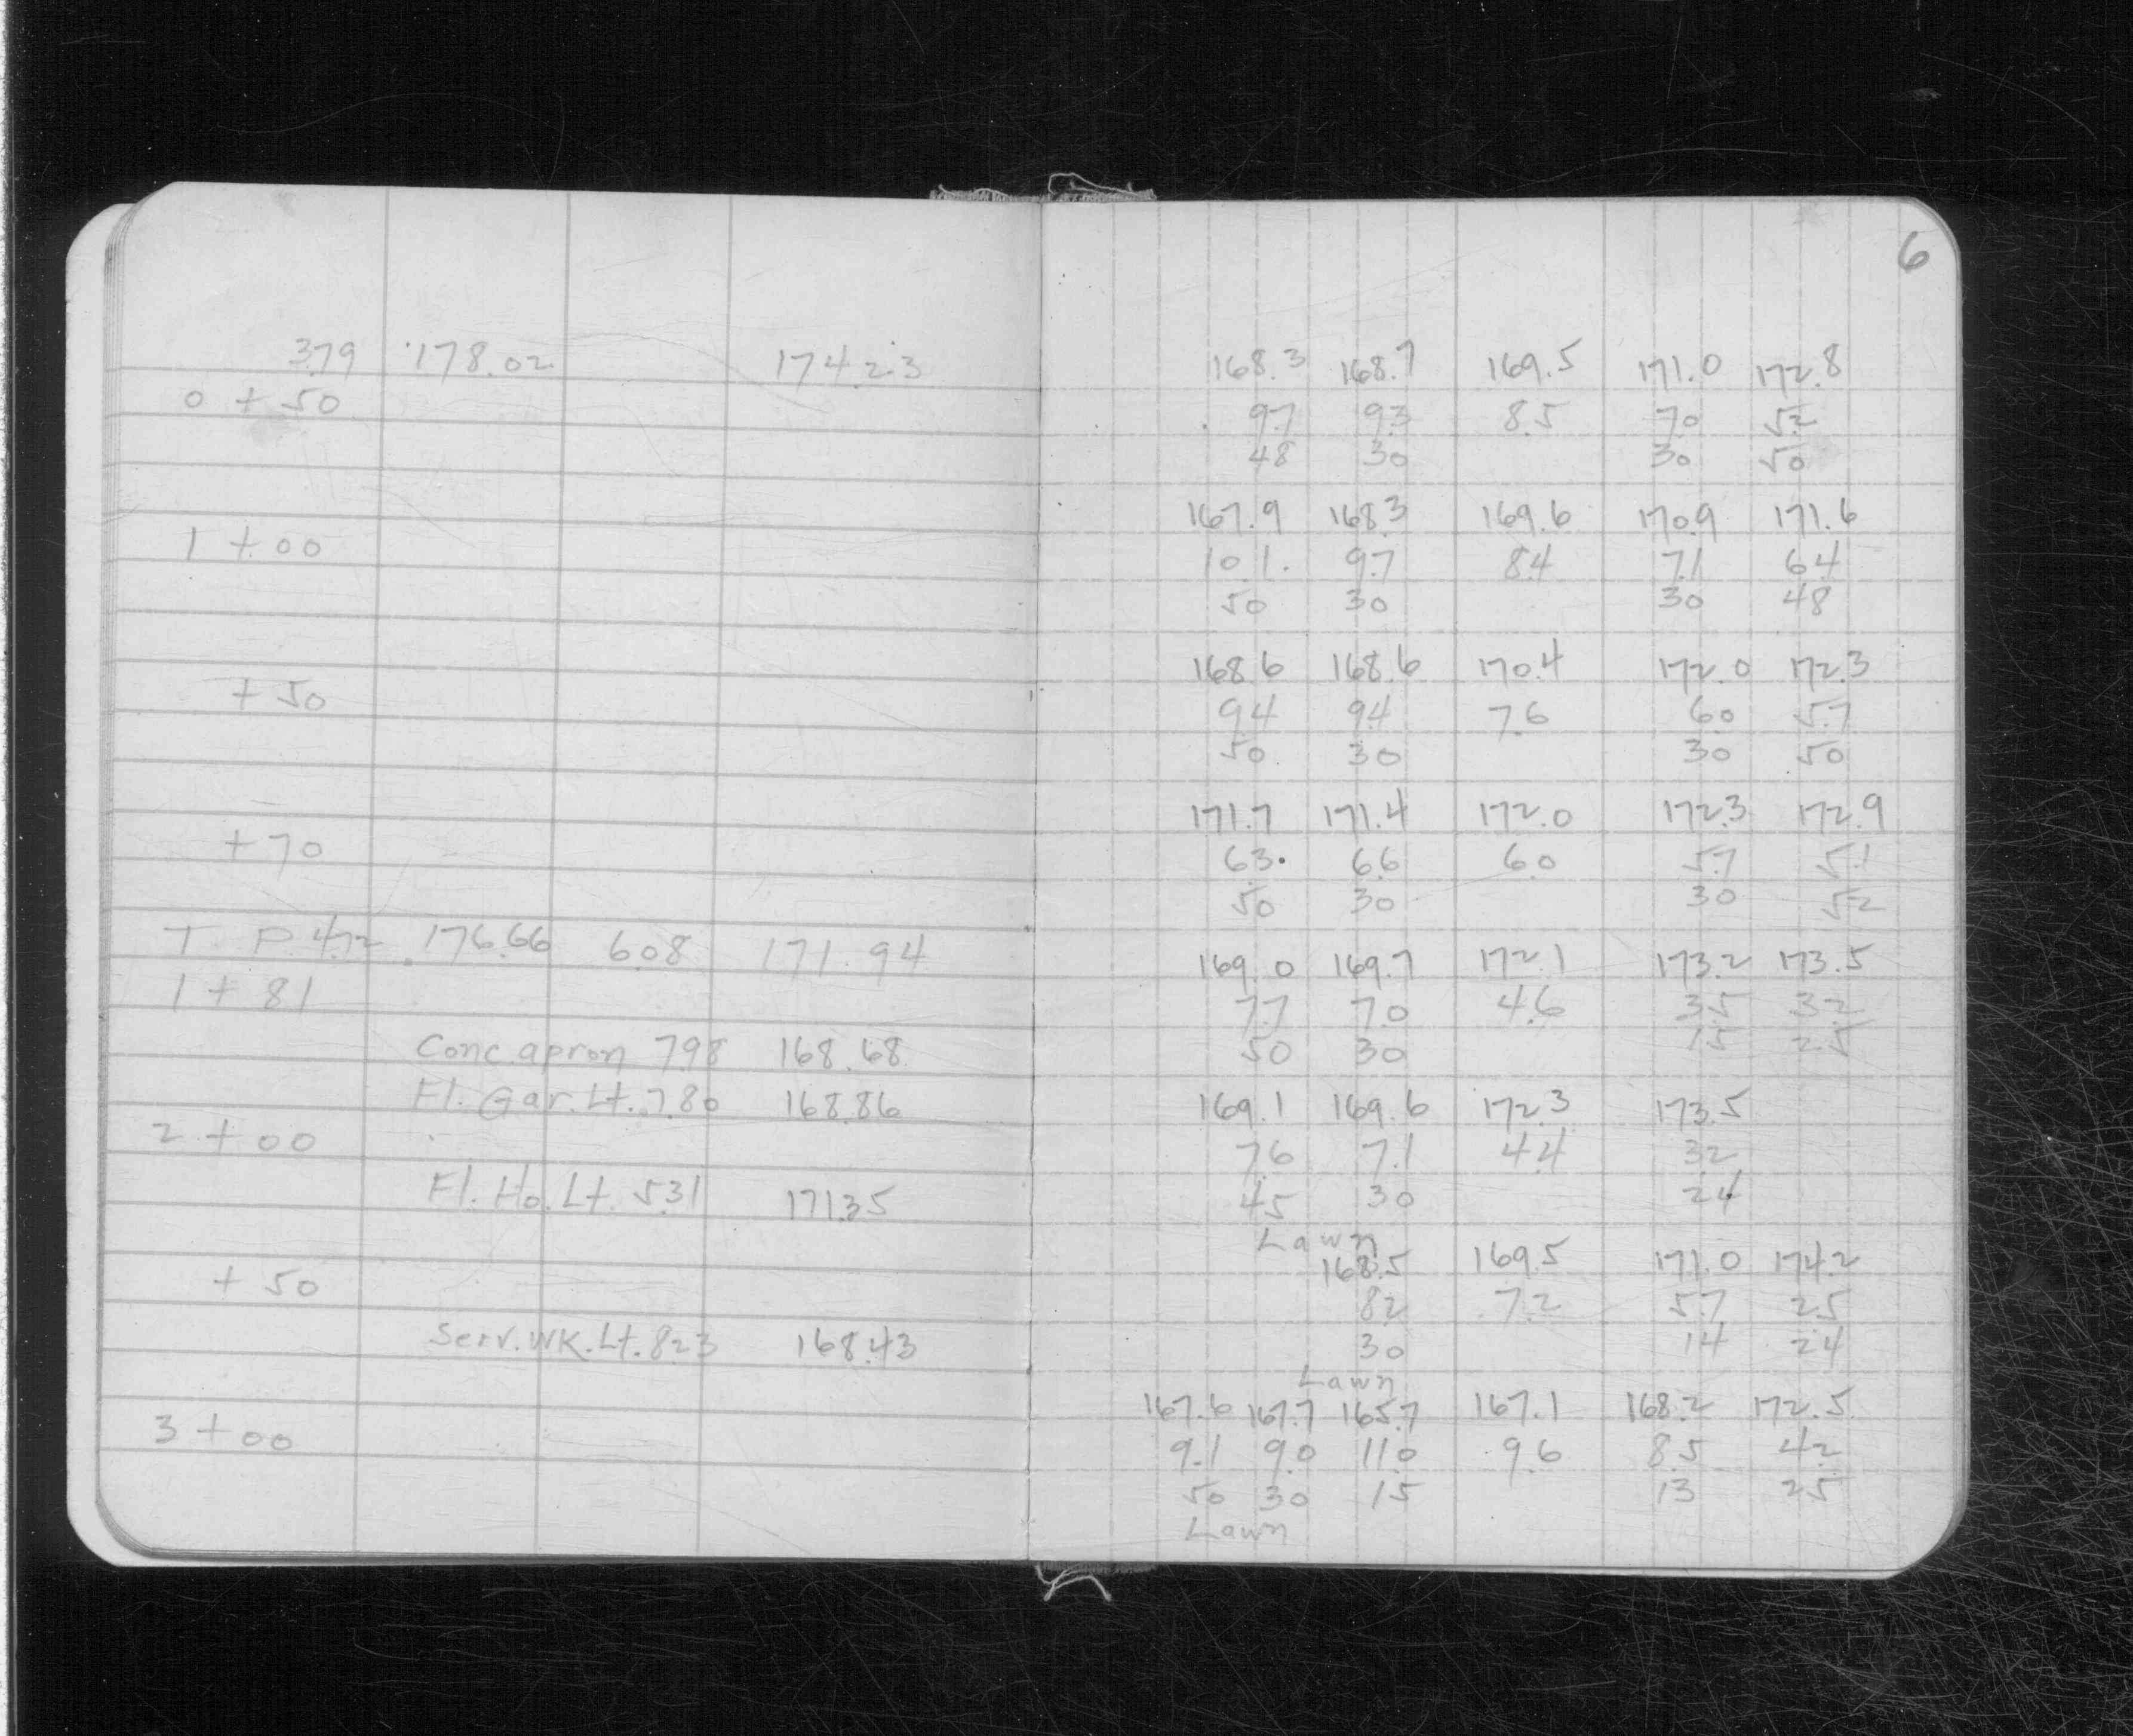 6
3.79 178.02 174.23
0 + 50
1 + 00
+ 50
+ 70
T P. 4.72 176.66 6.08 171.94
1 + 81
Conc. apron 7.98 168.68
Fl. Gar. Lt. 7.80 168.86
2 + 00
Fl. Ho. Lt. 5.31 171.35
+ 50
Serv. WK. Lt. 8.23 168.43
3 + 00
168.3 168.7 169.5 171.0 172.8
9.7 9.3 8.5 7.0 5.2
48 30 30 50
167.9 168.3 169.6 170.9 171.6
10.1 9.7 8.4 7.1 6.4
50 30 30 48
168.6 168.6 170.4 172.0 172.3
9.4 9.4 7.6 6.0 5.7
50 30 30 50
171.7 171.4 172.0 172.3 172.9
6.3 6.6 6.0 5.7 5.1
50 30 30 52
169.0 169.7 172.1 173.2 173.5
7.7 7.0 4.6 3.5 3.2
50 30 15 25
169.1 169.6 172.3 173.5
7.6 7.1 4.4 3.2
45 30 24
Lawn
168.5 169.5 171.0 174.2
8.2 7.2 5.7 2.5
30 14 24
Lawn
167.6 167.7 165.7 167.1 168.2 172.5
9.1 9.0 11.0 9.6 8.5 4.2
50 30 15 13 25
Lawn